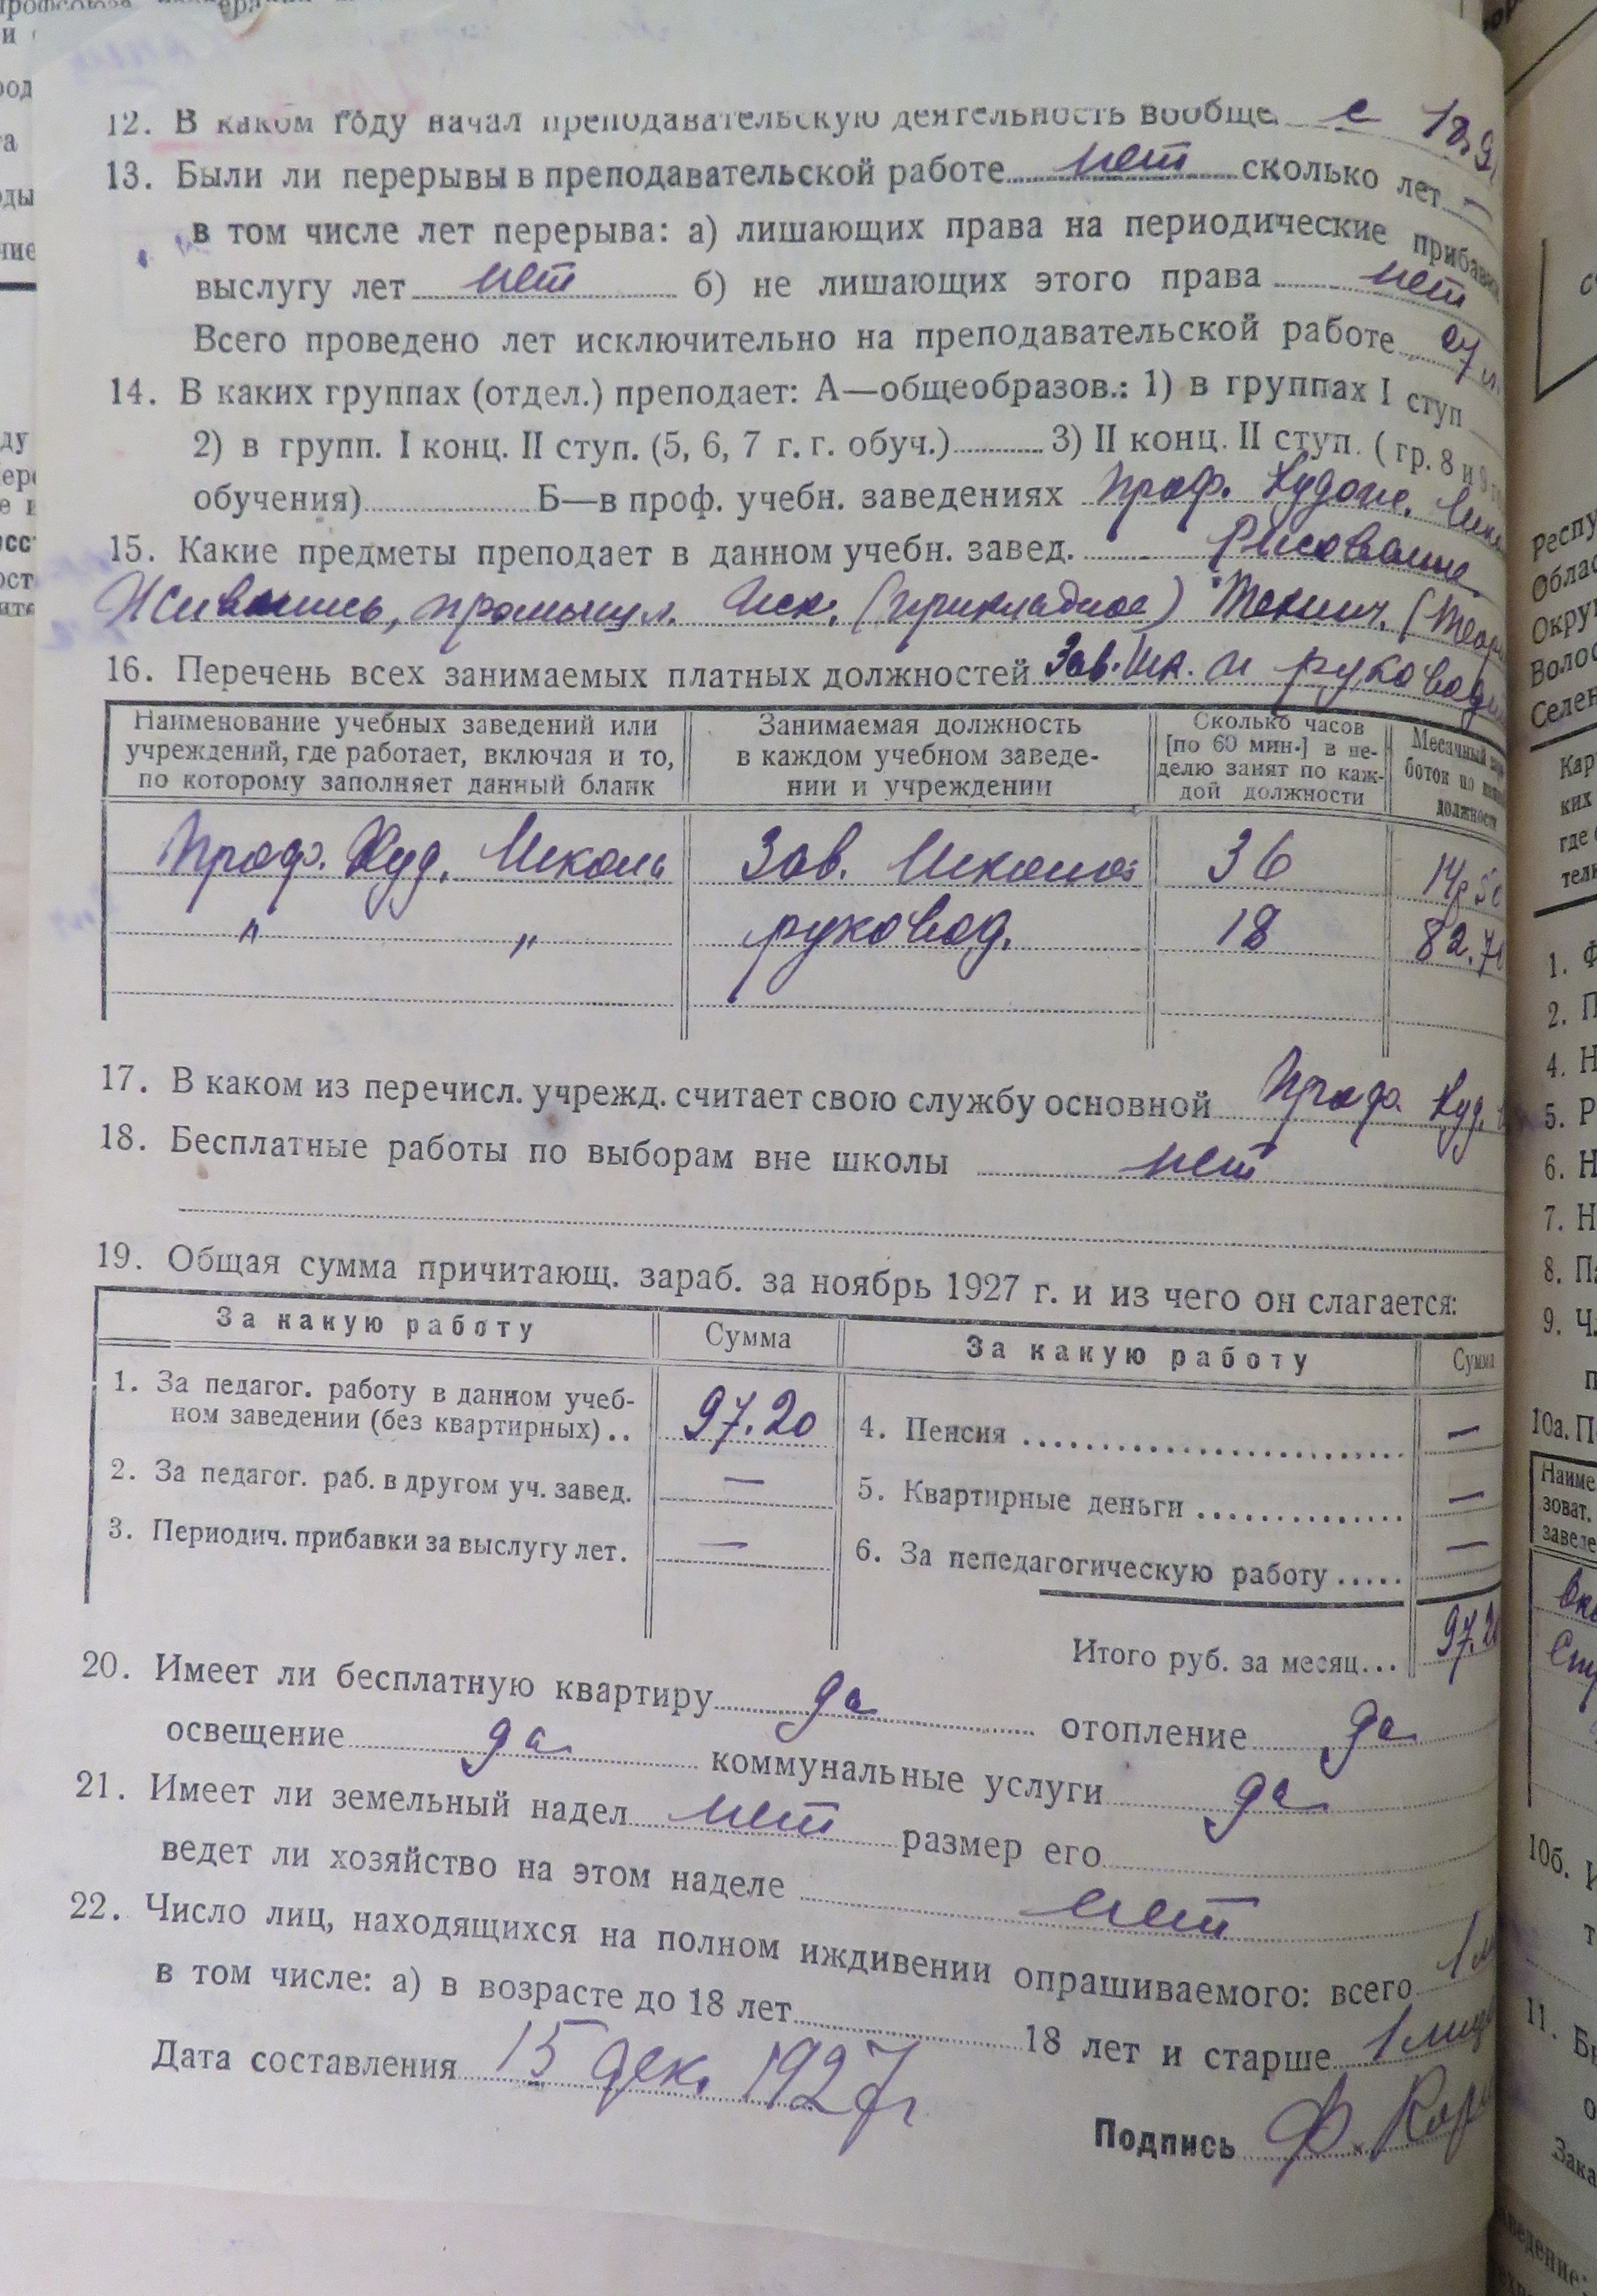 12. В каком году начал преподавательскую деятельность вообще с 189
13. Были ли перерывы в преподавательской работе нет сколько лет —
в том числе лет перерыва: а) лишающих права на периодические прибавки
выслугу лет нет б) не лишающих этого права нет
Всего проведено лет исключительно на преподавательской работе 27 л.
14. В каких группах (отдел.) преподает: А—общеобразов.: 1) в группах I ступ
2) в групп. I конц. II ступ. (5, 6, 7 г. г. обуч.) 3) II конц. II ступ. (гр. 8 и 9
обучения) Б—в проф. учебн. заведениях Проф. Худож.
15. Какие предметы преподает в данном учебн. завед. Рисование
Живопись, промышл. Иск. (прикладное) Технич. (Теор
16. Перечень всех занимаемых платных должностей Зав. Шк. и руковод
Наименование учебных заведений или учреждений, где работает, включая и то, по которому заполняет данный бланк
Занимаемая должность в каждом учебном заведении и учреждении
Сколько часов [по 60 мин.] в неделю занят по каждой должности
Месячный должности
Проф. Худ. Школы Зав. Школой 36 14р 50
" " руковод. 18 82.70
17. В каком из перечисл. учрежд. считает свою службу основной Проф. Худ.
18. Бесплатные работы по выборам вне школы нет
19. Общая сумма причитающ. зараб. за ноябрь 1927 г. и из чего он слагается:
За какую работу Сумма За какую работу Сумма
1. За педагог. работу в данном учебном заведении (без квартирных).. 97.20 4. Пенсия —
2. За педагог. раб. в другом уч. завед. — 5. Квартирные деньги —
3. Периодич. прибавки за выслугу лет. — 6. За непедагогическую работу —
Итого руб. за месяц... 97.20
20. Имеет ли бесплатную квартиру да отопление да
освещение да коммунальные услуги да
21. Имеет ли земельный надел нет размер его
ведет ли хозяйство на этом наделе нет
22. Число лиц, находящихся на полном иждивении опрашиваемого: всего 1
в том числе: а) в возрасте до 18 лет 18 лет и старше 1 лицо
Дата составления 15 дек. 1927 г
Подпись Ф. Кор